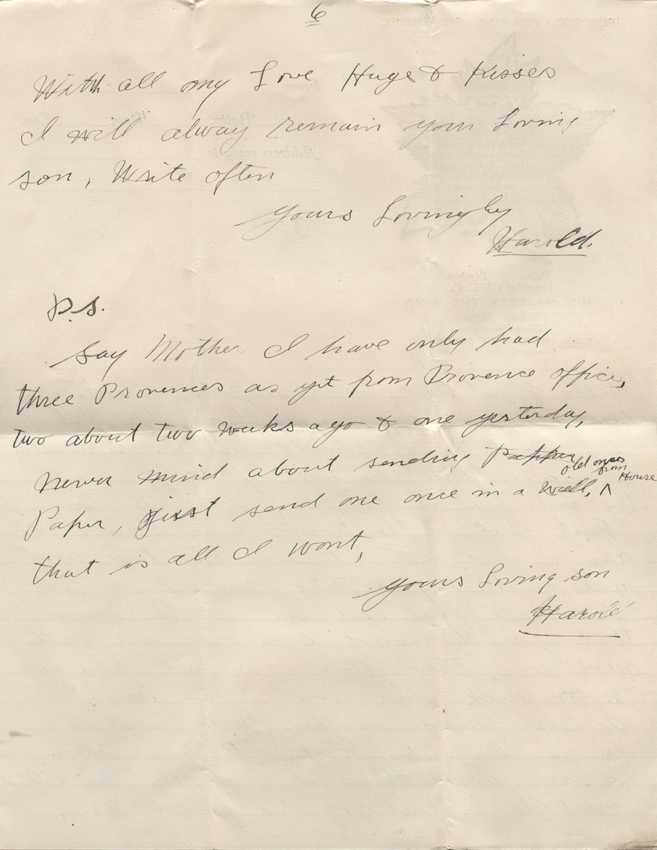 6
With all my Love Huge & Kisses
I will alway remain your Loving
son, Write often
yours Lovingly
Harold.
P.S.
Say Mother I have only had
three Provences as yet from Provence office,
two about two weeks ago & one yesterday,
never mind about sending
old ones
from House
Paper, just send one once in a
that is all I wont,
yours Loving son
Harold